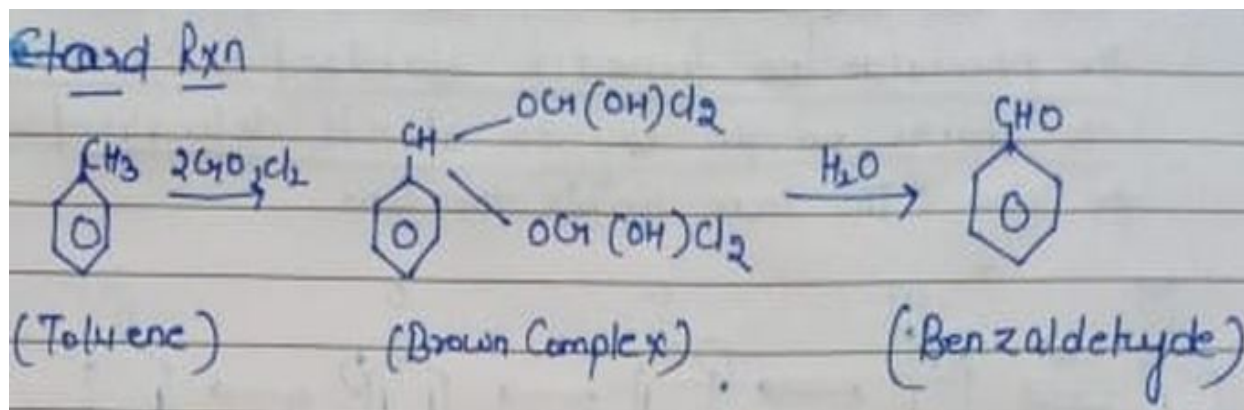 Etard Rxn
CH3 2CrO2Cl2 CH OCr(OH)Cl2 H2O CHO
OCr(OH)Cl2
(Toluene) (Brown Complex) (Benzaldehyde)